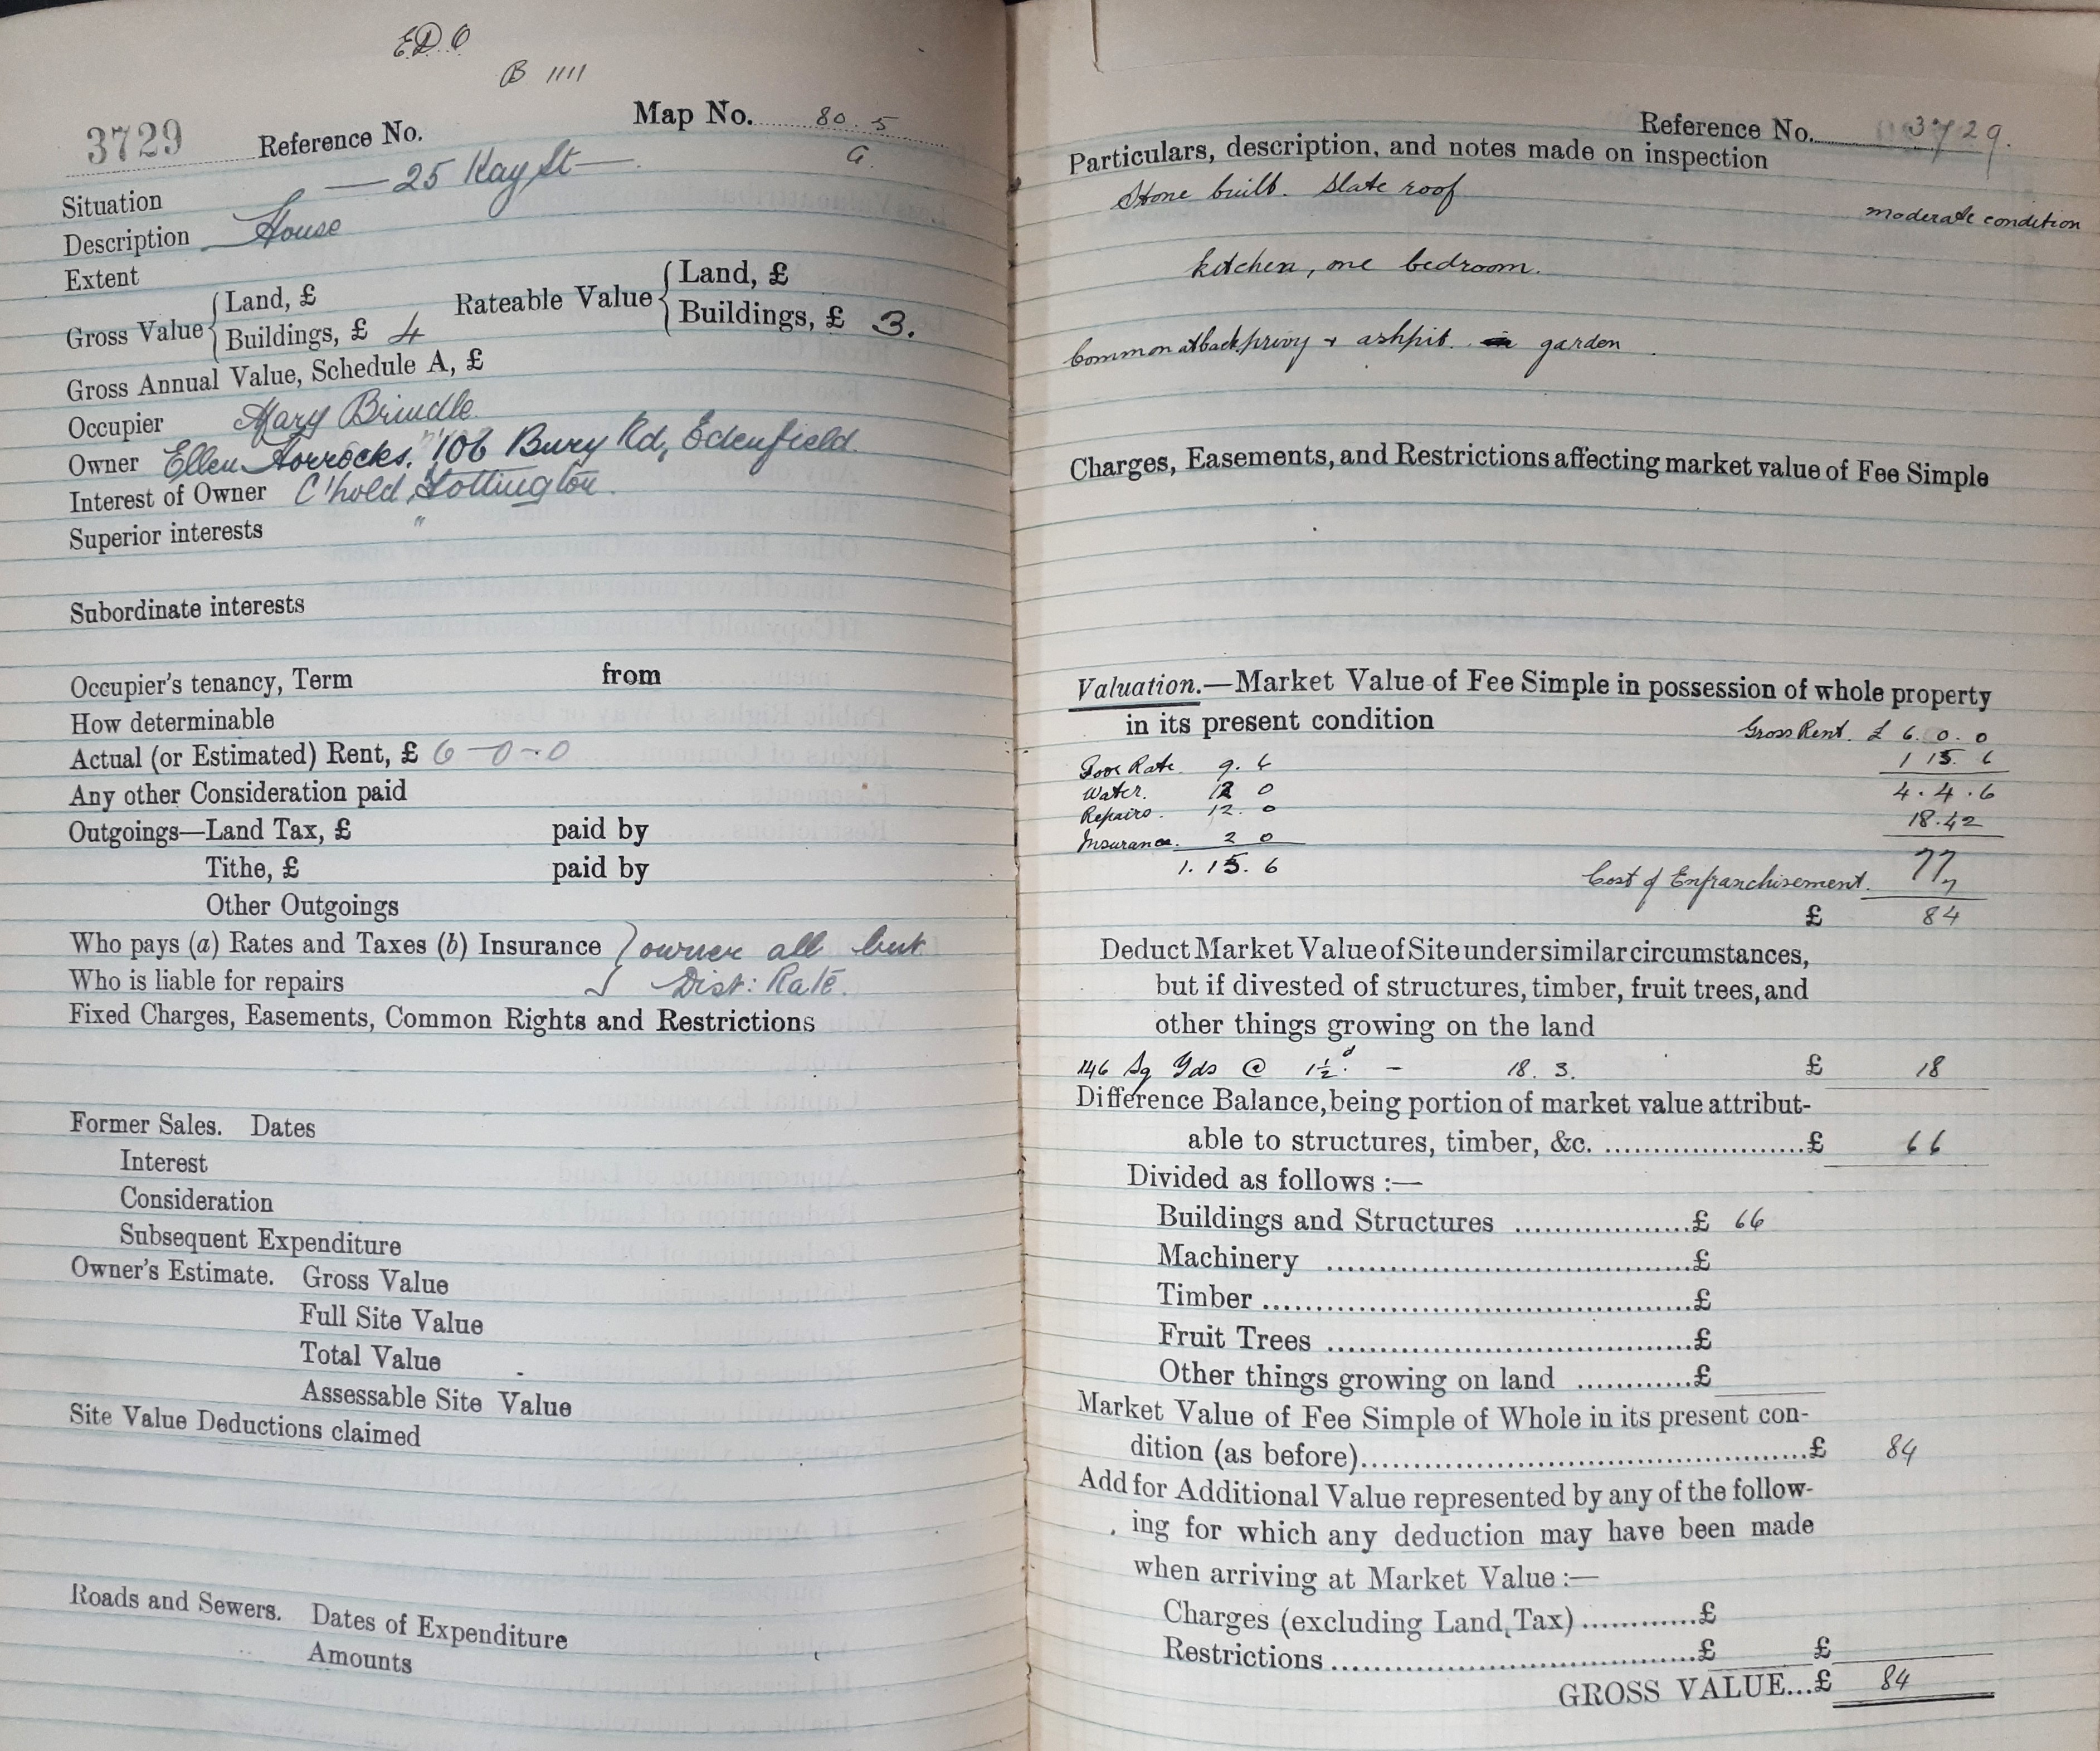 E.D.O
B 1111
3729 Reference No. Map No. 80.5
G.
Situation — 25 Kay St —
Description House
Extent
Gross Value { Land, £
Buildings, £ 4
Rateable Value { Land, £
Buildings, £ 3.
Gross Annual Value, Schedule A, £
Occupier Mary Brindle
Owner Ellen Horrocks. 106 Bury Rd, Edenfield.
Interest of Owner C'hold, Tottington.
Superior interests "
Subordinate interests
Occupier's tenancy, Term from
How determinable
Actual (or Estimated) Rent, £ 6-0-0
Any other Consideration paid
Outgoings—Land Tax, £ paid by
Tithe, £ paid by
Other Outgoings
Who pays (a) Rates and Taxes (b) Insurance } owner all but
Who is liable for repairs } Dist: Rate.
Fixed Charges, Easements, Common Rights and Restrictions
Former Sales. Dates
Interest
Consideration
Subsequent Expenditure
Owner's Estimate. Gross Value
Full Site Value
Total Value
Assessable Site Value
Site Value Deductions claimed
Roads and Sewers. Dates of Expenditure
Amounts
Reference No. 3729.
Particulars, description, and notes made on inspection
Stone built. Slate roof
moderate condition
kitchen, one bedroom.
Common at back, privy + ashpit. garden
Charges, Easements, and Restrictions affecting market value of Fee Simple
Valuation.—Market Value of Fee Simple in possession of whole property
in its present condition
Gross Rent. £ 6. 0. 0
Poor Rate. 9. 6 1 15. 6
Water. 12 0 4. 4. 6
Repairs. 12. 0 18.42
Insurance. 2 0
1. 15. 6 77
Cost of Enfranchisement. 7
£ 84
Deduct Market Value of Site under similar circumstances,
but if divested of structures, timber, fruit trees, and
other things growing on the land
146 Sq Yds @ 1½d - 18. 3. £ 18
Difference Balance, being portion of market value attribut-
able to structures, timber, &c. £ 66
Divided as follows :—
Buildings and Structures £ 66
Machinery £
Timber £
Fruit Trees £
Other things growing on land £
Market Value of Fee Simple of Whole in its present con-
dition (as before) £ 84
Add for Additional Value represented by any of the follow-
ing for which any deduction may have been made
when arriving at Market Value :—
Charges (excluding Land Tax) £
Restrictions £ £
GROSS VALUE...£ 84